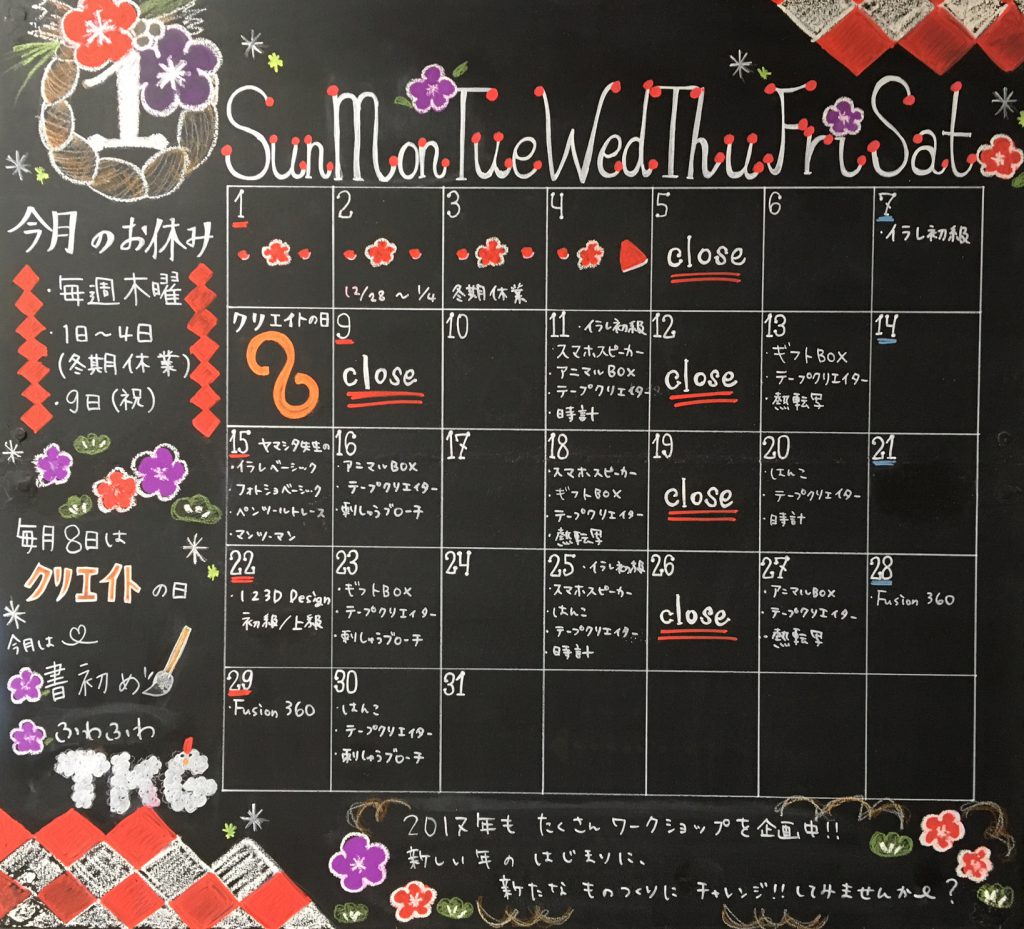 1
Sun Mon Tue Wed Thu Fri Sat
今月のお休み
・毎週木曜
・1日～4日
(冬期休業)
・9日(祝)
毎月8日は
クリエイトの日
今月は
書初め
ふわふわ
TKG
1
2
12/28～1/4
3
冬期休業
4
5
close
6
7
・イラレ初級
クリエイトの日
8
9
close
10
11 ・イラレ初級
・スマホスピーカー
・アニマルBOX
・テープクリエイター
・時計
12
close
13
・ギフトBOX
・テープクリエイター
・熱転写
14
15 ヤマシタ先生の
・イラレベーシック
・フォトショベーシック
・ペンツールトレース
・マンツーマン
16
・アニマルBOX
・テープクリエイター
・刺しゅうブローチ
17
18
・スマホスピーカー
・ギフトBOX
・テープクリエイター
・熱転写
19
close
20
・はんこ
・テープクリエイター
・時計
21
22
・123D Design
初級/上級
23
・ギフトBOX
・テープクリエイター
・刺しゅうブローチ
24
25 ・イラレ初級
・スマホスピーカー
・はんこ
・テープクリエイター
・時計
26
close
27
・アニマルBOX
・テープクリエイター
・熱転写
28
・Fusion 360
29
・Fusion 360
30
・はんこ
・テープクリエイター
・刺しゅうブローチ
31
2017年も たくさん ワークショップを企画中!!
新しい年の はじまりに、
新たな ものつくりに チャレンジ!!してみませんか?